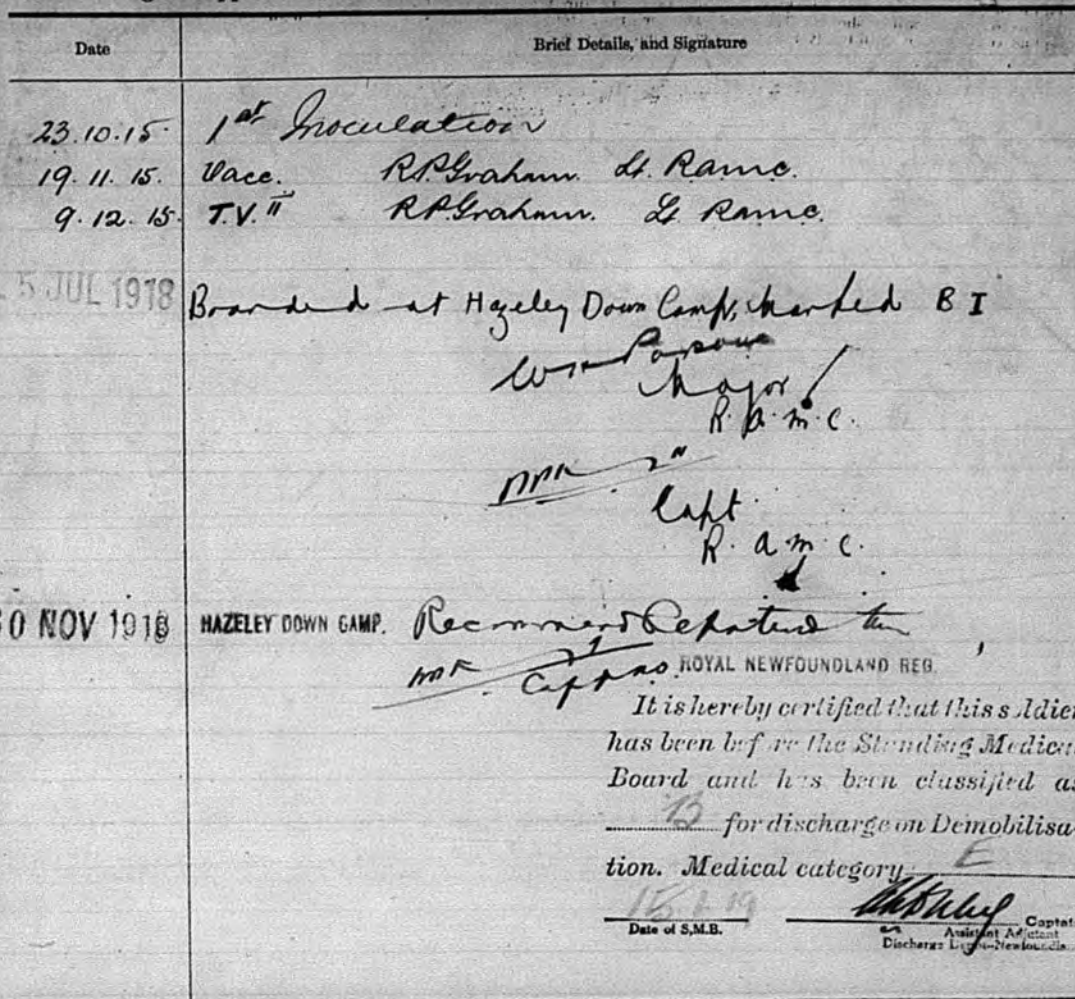 Date Brief Details, and Signature
23.10.15 1st Inoculation
19.11.15. Vacc. R.P. Graham. Lt. RAMC.
9.12.15. T.V. II R.P. Graham. Lt RAMC.
5 JUL 1918 Boarded at Hazeley Down Camp, Marked B I
Parsons
Major
R.A.M.C.
Capt
R.a.m.c.
0 NOV 1918 HAZELEY DOWN CAMP. Recommend Repatriation
Capt ROYAL NEWFOUNDLAND REG.
It is hereby certified that this soldier
has been before the Standing Medical
Board and has been classified as
B for discharge on Demobilisa-
tion. Medical category E
Date of S.M.B. Captai
Assistant Adjutant
Discharge Depot-Newfoundla